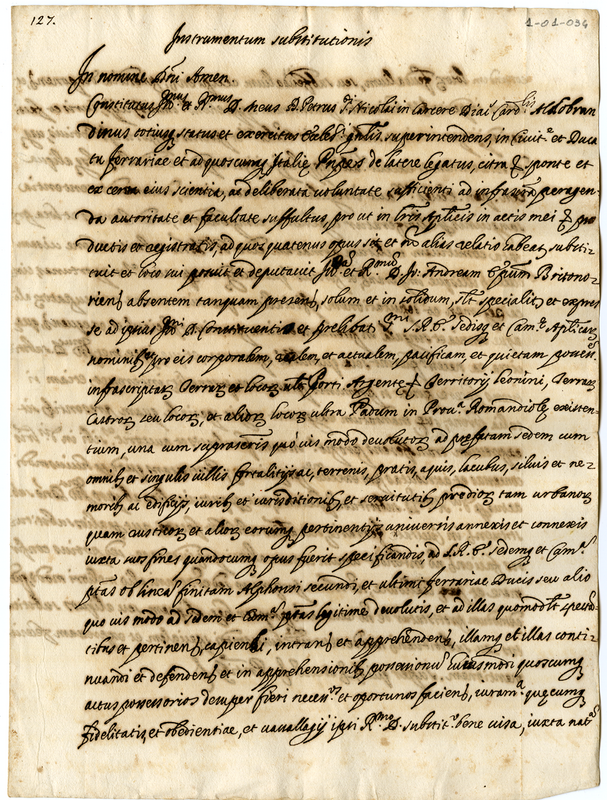 127.
1-01-034
Instrumentum substitutionis
In nomine Dni Amen.
Constitutus Illmus et Rmus D. meus D. Petrus S. Nicolai in carcere Diac. Card.lis Aldobran
dinus totiusq status et exercitus eccles. gnlis superintendens, in Civit.e et Duca
tu ferrariae et ad quoscumq Italie Pnpes de latere legatus, citra & sponte et
ex certa eius scientia, ac deliberata voluntate sufficienti ad infrascta peragen
da autoritate et facultate suffultus, pro ut in lris Aplicis in actis mei & pro
ductis et registratis, ad quas quatenus opus sit et alias relatio habeat, substi
tuit et loco sui posuit et deputavit Illm et R.mum D. Jo. Andream Epum Britono
rien absentem tanquam presens, solum et in solidum, specialit et expres
se ad ipsius Illmi D. Constituentis et prelibat S.R.E. Sedisq et Cam. Aplicae
nominib pro eis corporalem, realem, et actualem, pacificam, et quietam possess.
infrascriptar Terrar et locor Porti Argente & Territorij leonini, Terrar
Castror seu locor, et alior locor ultra Padum in Prov.a Romandiole existen
tium, una cum suprascris quovis modo devolutor ad prefatam sedem cum
omnib et singulis villis fortalitijs ac, terrenis, pratis, aquis, lacubus, silvis et ne
morib ac edificijs, iurib et iurisditionib et servitutib prediorꝫ tam urbanor
quam rusticor et alior eorumq pertinentijs universis annexis et connexis
iuxta suos fines quandocumq opus fuerit specificandis, ad S.R.E. Sedemq et Cam.
ptas ob lineas finitam Alphonsi secundi, et ultimi ferrariae Ducis seu alio
quo vis modo ad Sedem et Cam. ptas legitime devolutis, et ad illas quomodlt spect
titus et pertinen, capiendi, intrans et apprehendens, illamq et illas conti
nuandi et defendens et in apprehensionib possessionu huiusmodi quoscumq
actus possessorios desuper fieri necess et oportunos faciens, iuram quecumq
fidelitatis et obedientiae, et vassallagij ipsi R.mo D. substit. bene visa, iuxta nat